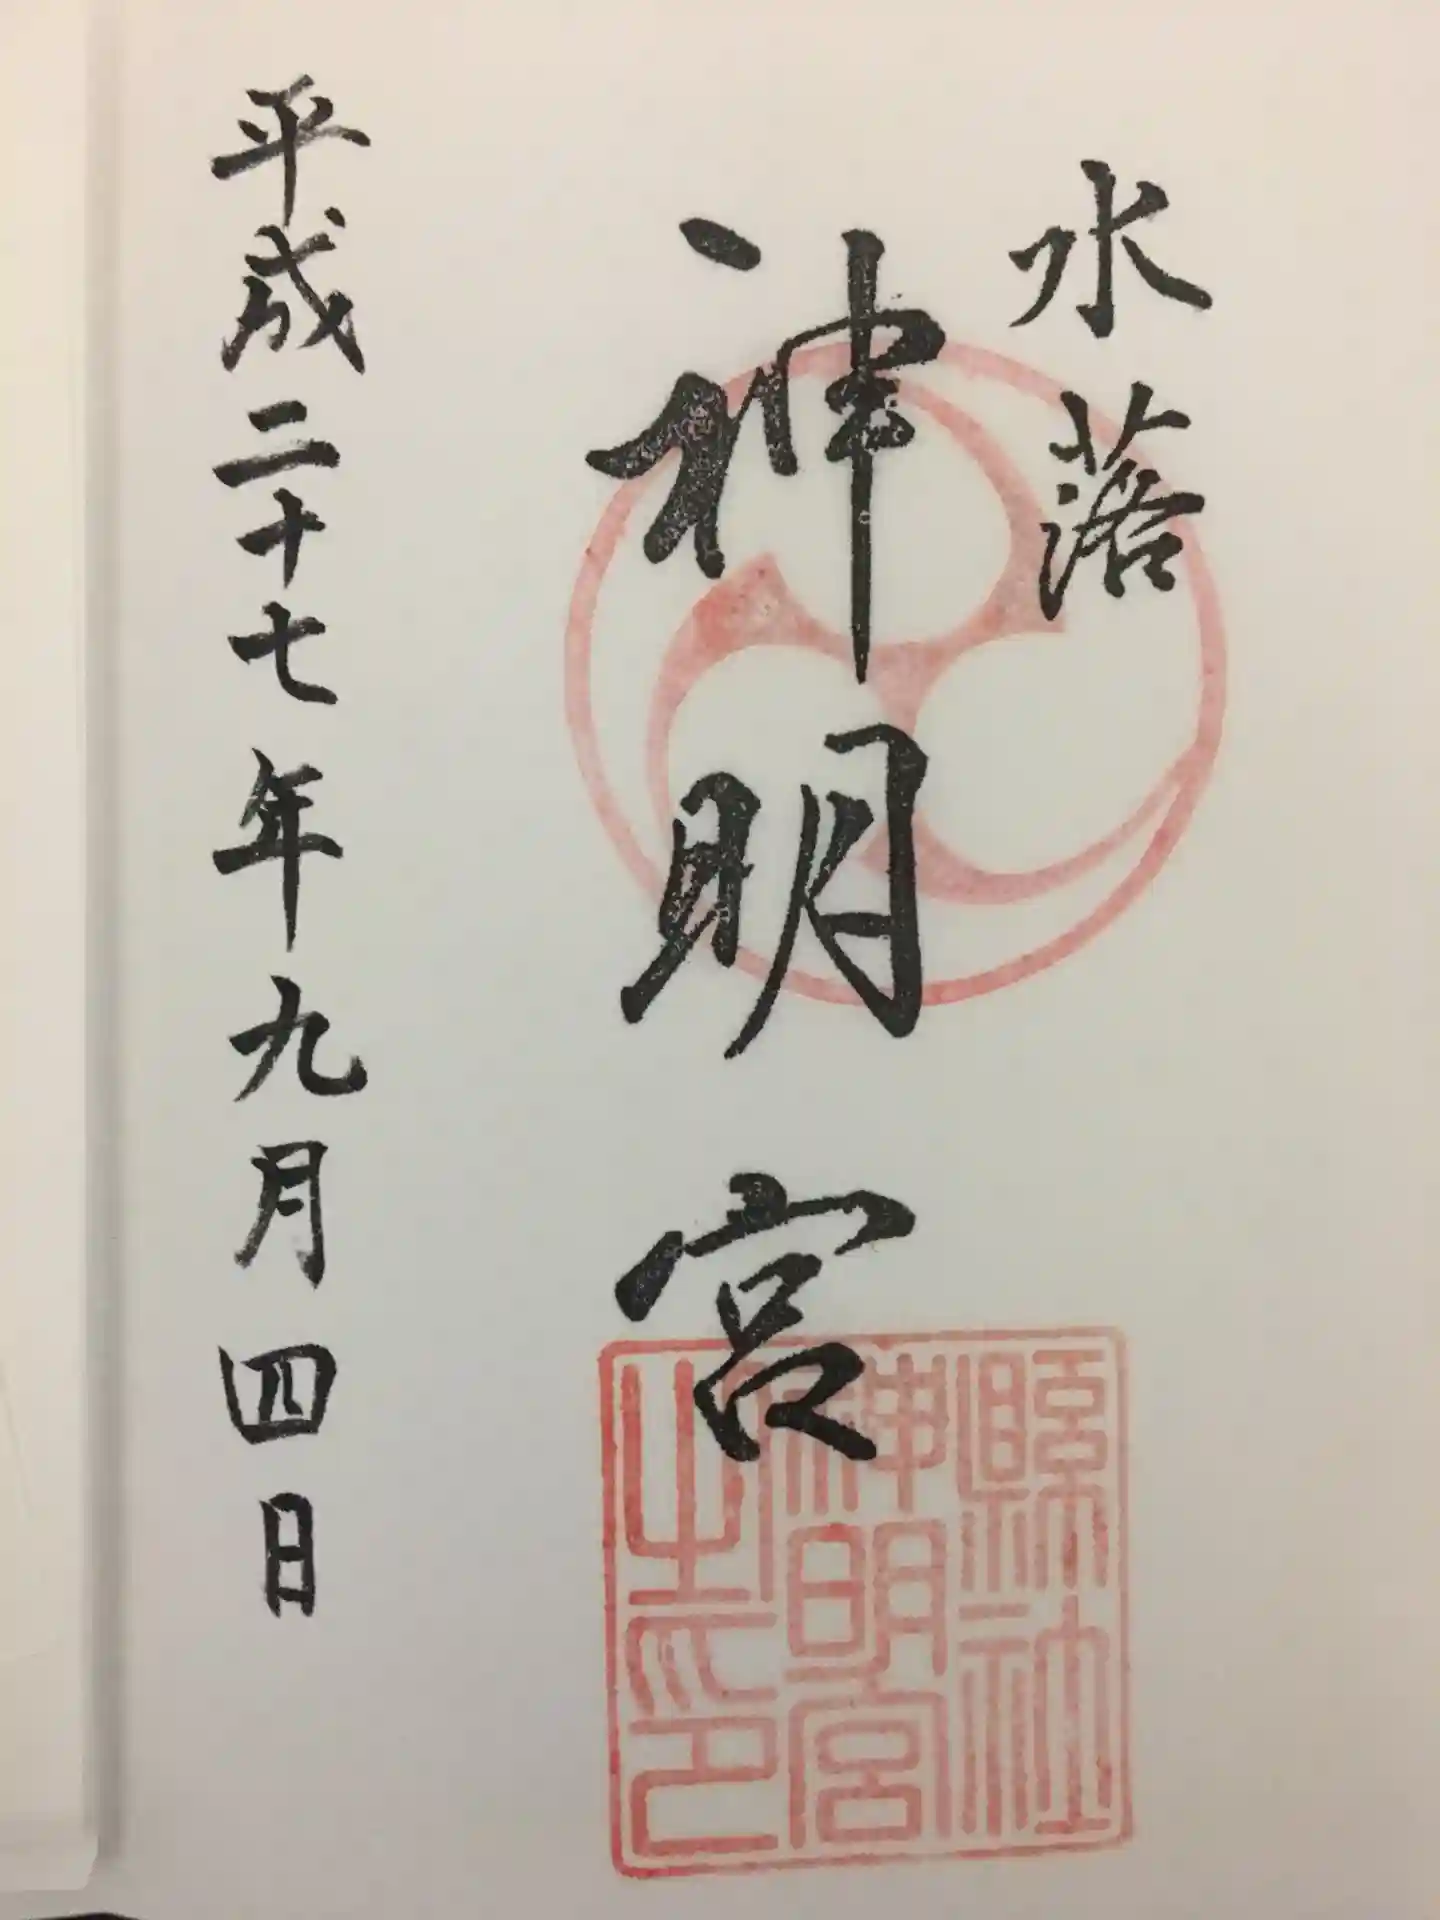 水落
神明宮
縣社
神明宮
之印
平成二十七年九月四日